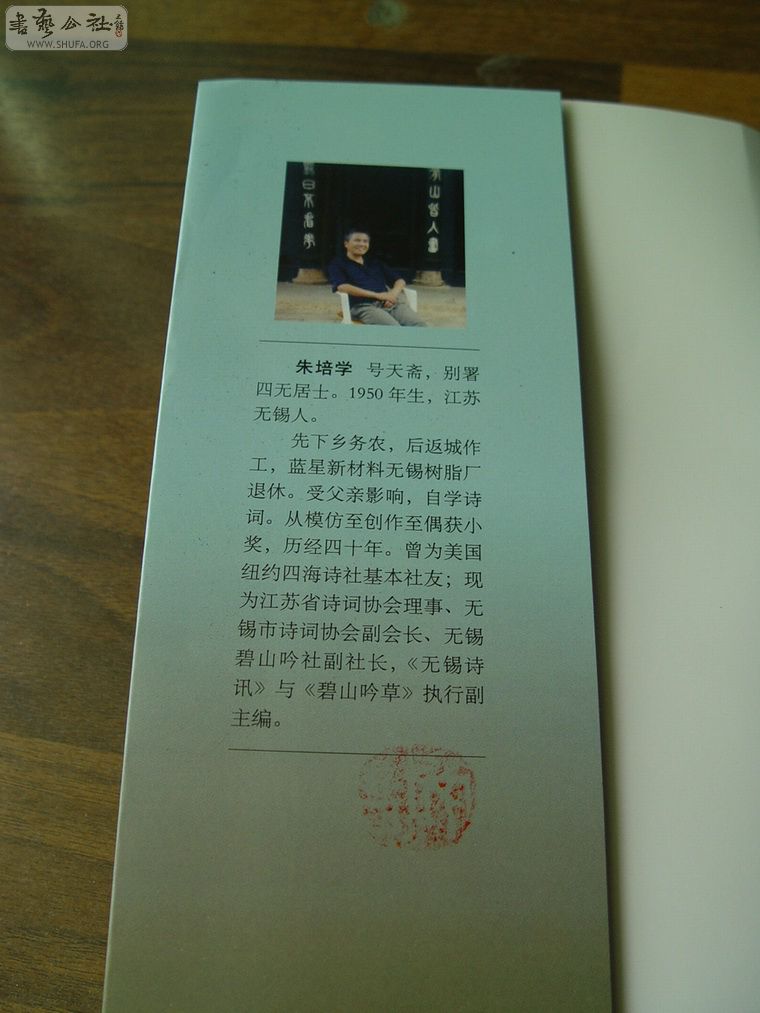 書藝公社
WWW.SHUFA.ORG
朱培学 号天斋，别署
四无居士。1950 年生，江苏
无锡人。
先下乡务农，后返城作
工，蓝星新材料无锡树脂厂
退休。受父亲影响，自学诗
词。从模仿至创作至偶获小
奖，历经四十年。曾为美国
纽约四海诗社基本社友；现
为江苏省诗词协会理事、无
锡市诗词协会副会长、无锡
碧山吟社副社长，《无锡诗
讯》与《碧山吟草》执行副
主编。